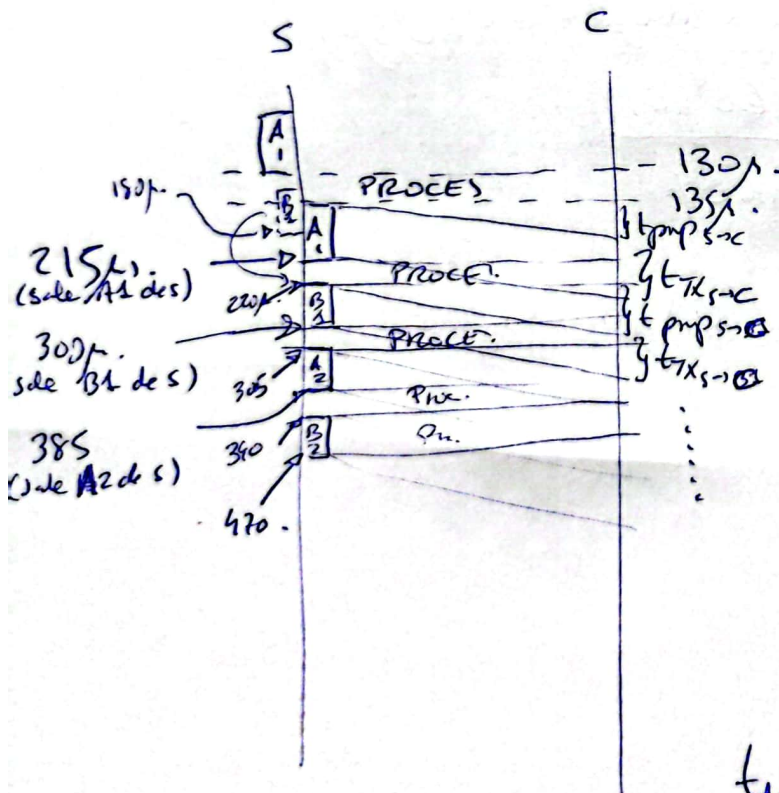 S C
A1
130μ.
PROCES
135μ.
B2
A1
t prop s→c
215μs.
(sale A1 de S)
PROCET.
t Tx s→c
220μ
B1
t prop s→
PROCE.
300μ.
sale B1 de S)
t Tx s→
305
A2
Proc.
385
(sale A2 de S)
390
B2
Pr.
470.